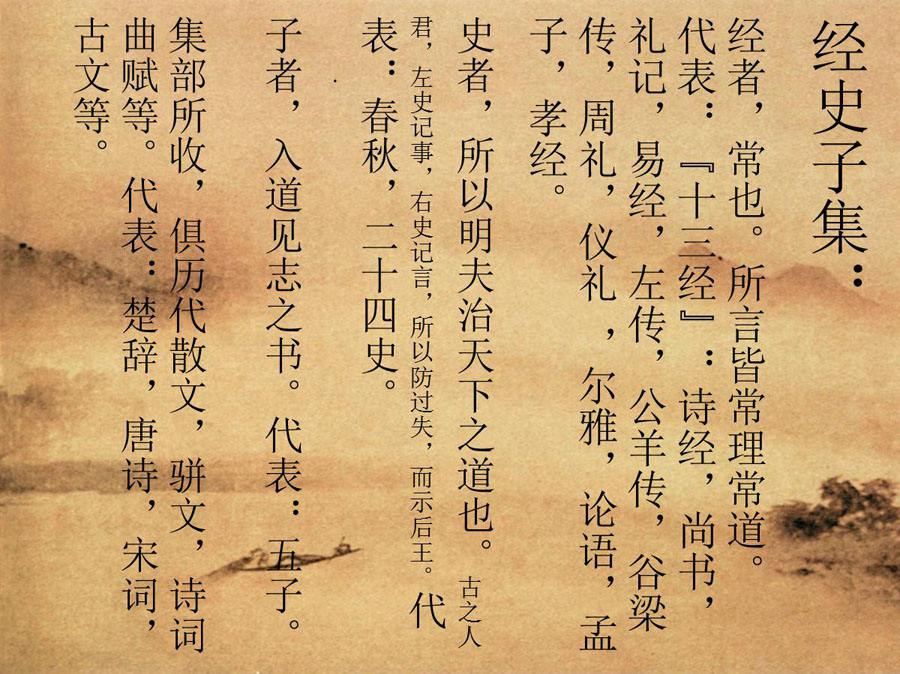 经史子集：
经者，常也。所言皆常理常道。
代表：『十三经』：诗经，尚书，
礼记，易经，左传，公羊传，谷梁
传，周礼，仪礼，尔雅，论语，孟
子，孝经。
史者，所以明夫治天下之道也。古之人
君，左史记事，右史记言，所以防过失，而示后王。代
表：春秋，二十四史。
子者，入道见志之书。代表：五子。
集部所收，俱历代散文，骈文，诗词
曲赋等。代表：楚辞，唐诗，宋词，
古文等。